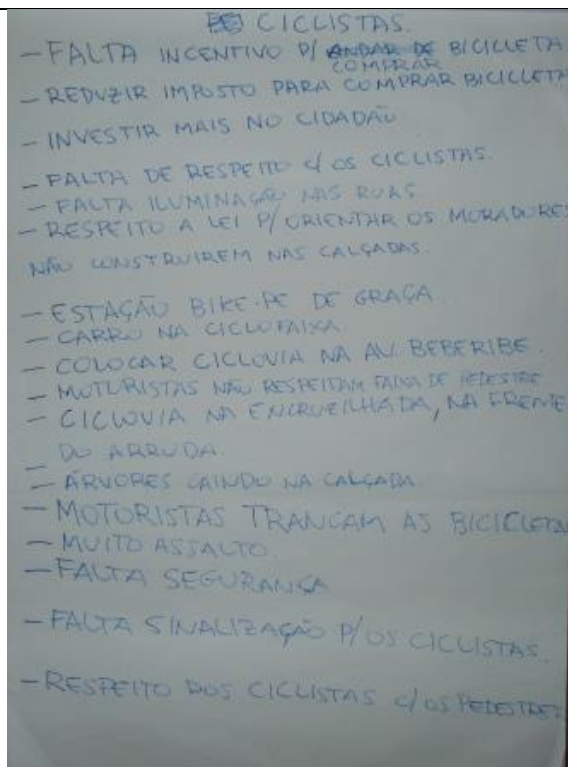 CICLISTAS.
- FALTA INCENTIVO P/ ANDAR DE BICICLETA
COMPRAR
- REDUZIR IMPOSTO PARA COMPRAR BICICLETA
- INVESTIR MAIS NO CIDADÃO
- FALTA DE RESPEITO C/ OS CICLISTAS.
- FALTA ILUMINAÇÃO NAS RUAS
- RESPEITO A LEI P/ ORIENTAR OS MORADORES
NÃO CONSTRUIREM NAS CALÇADAS.
- ESTAÇÃO BIKE-PE DE GRAÇA
- CARRO NA CICLOFAIXA
- COLOCAR CICLOVIA NA AV. BEBERIBE.
- MOTORISTAS NÃO RESPEITAM FAIXA DE PEDESTRE
- CICLOVIA NA ENCRUZILHADA, NA FRENTE
DO ARRUDA.
- ÁRVORES CAINDO NA CALÇADA
- MOTORISTAS TRANCAM AS BICICLETAS
- MUITO ASSALTO.
- FALTA SEGURANÇA
- FALTA SINALIZAÇÃO P/ OS CICLISTAS.
- RESPEITO DOS CICLISTAS C/ OS PEDESTRES